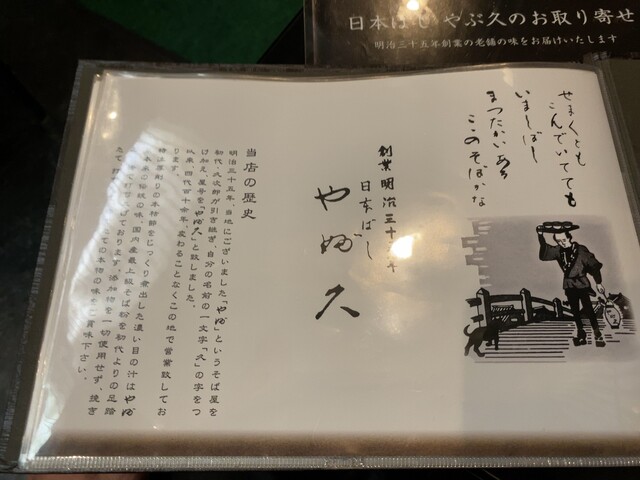 日本ばし やぶ久のお取り寄せ
明治三十五年創業の老舗の味をお届けいたします
せまくとも
こんでいてても
いましばし
まつたかいある
ここのそばかな
創業明治三十五年
日本ばし
やぶ久
当店の歴史
明治三十五年、当地にございました「やぶ」というそば屋を
初代、久次郎が引き継ぎ、自分の名前の一文字「久」の字をつ
け加え、屋号を「やぶ久」と致しました。
以来、四代百十余年、変わることなくこの地で営業致してお
ります。
削りの本枯節をじっくり煮出した濃い目の汁はやぶ
本来の伝統の味、国内産最上級そば粉を初代よりの足踏
て打ち上げております。添加物を一切使用せず、挽き
たて、打
たての本物の味をご賞味下さい。